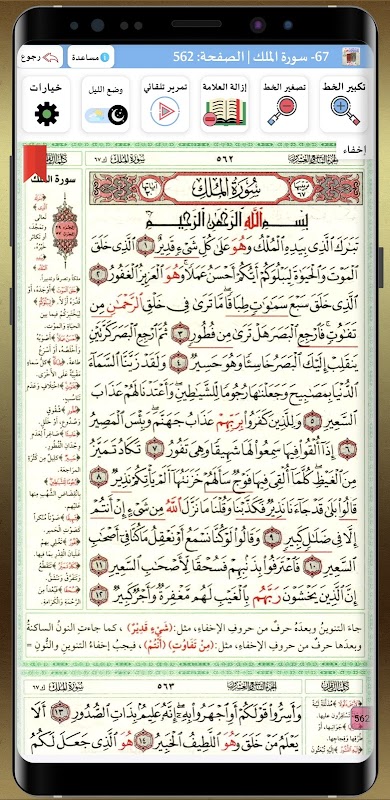 67- سورة الملك | الصفحة: 562
مساعدة
رجوع
تكبير الخط
تصغير الخط
إزالة العلامة
تمرير تلقائي
وضع الليل
خيارات
إخفاء
٥٦٢
سُورَةُ المُلْكِ
سورة الملك
سُورَةُ المُلْكِ
بِسْمِ اللَّهِ الرَّحْمَٰنِ الرَّحِيمِ
تَبَارَكَ الَّذِي بِيَدِهِ الْمُلْكُ وَهُوَ عَلَىٰ كُلِّ شَيْءٍ قَدِيرٌ ١ الَّذِي خَلَقَ
الْمَوْتَ وَالْحَيَاةَ لِيَبْلُوَكُمْ أَيُّكُمْ أَحْسَنُ عَمَلًا وَهُوَ الْعَزِيزُ الْغَفُورُ ٢
الَّذِي خَلَقَ سَبْعَ سَمَاوَاتٍ طِبَاقًا مَّا تَرَىٰ فِي خَلْقِ الرَّحْمَٰنِ مِن
تَفَاوُتٍ فَارْجِعِ الْبَصَرَ هَلْ تَرَىٰ مِن فُطُورٍ ٣ ثُمَّ ارْجِعِ الْبَصَرَ كَرَّتَيْنِ
يَنقَلِبْ إِلَيْكَ الْبَصَرُ خَاسِئًا وَهُوَ حَسِيرٌ ٤ وَلَقَدْ زَيَّنَّا السَّمَاءَ
الدُّنْيَا بِمَصَابِيحَ وَجَعَلْنَاهَا رُجُومًا لِّلشَّيَاطِينِ وَأَعْتَدْنَا لَهُمْ عَذَابَ
السَّعِيرِ ٥ وَلِلَّذِينَ كَفَرُوا بِرَبِّهِمْ عَذَابُ جَهَنَّمَ وَبِئْسَ الْمَصِيرُ
٦ إِذَا أُلْقُوا فِيهَا سَمِعُوا لَهَا شَهِيقًا وَهِيَ تَفُورُ ٧ تَكَادُ تَمَيَّزُ
مِنَ الْغَيْظِ كُلَّمَا أُلْقِيَ فِيهَا فَوْجٌ سَأَلَهُمْ خَزَنَتُهَا أَلَمْ يَأْتِكُمْ نَذِيرٌ ٨
قَالُوا بَلَىٰ قَدْ جَاءَنَا نَذِيرٌ فَكَذَّبْنَا وَقُلْنَا مَا نَزَّلَ اللَّهُ مِن شَيْءٍ إِنْ أَنتُمْ
إِلَّا فِي ضَلَالٍ كَبِيرٍ ٩ وَقَالُوا لَوْ كُنَّا نَسْمَعُ أَوْ نَعْقِلُ مَا كُنَّا فِي أَصْحَابِ
السَّعِيرِ ١٠ فَاعْتَرَفُوا بِذَنبِهِمْ فَسُحْقًا لِّأَصْحَابِ السَّعِيرِ ١١
إِنَّ الَّذِينَ يَخْشَوْنَ رَبَّهُم بِالْغَيْبِ لَهُم مَّغْفِرَةٌ وَأَجْرٌ كَبِيرٌ ١٢
جاءَ التنوينُ وبعدَهُ حرفٌ من حروفِ الإخفاءِ، مثل: (شَيْءٍ قَدِيرٌ)، كما جاءتِ النونُ الساكنةُ
وبعدها حرفٌ من حروفِ الإخفاءِ، مثل: (مِن تَفَاوُتٍ) (أَنتُمْ)، فيجبُ إخفاءُ التنوينِ والنُّونِ =
٥٦٣
سُورَةُ المُلْكِ
562
وَأَسِرُّوا قَوْلَكُمْ أَوِ اجْهَرُوا بِهِ إِنَّهُ عَلِيمٌ بِذَاتِ الصُّدُورِ ١٣ أَلَا
يَعْلَمُ مَنْ خَلَقَ وَهُوَ اللَّطِيفُ الْخَبِيرُ ١٤ هُوَ الَّذِي جَعَلَ لَكُمُ